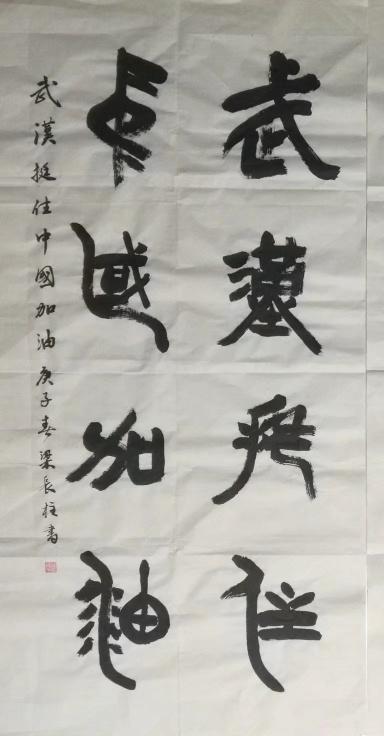 武漢挺住
中國加油
武漢挺住中國加油庚子春梁長柱書